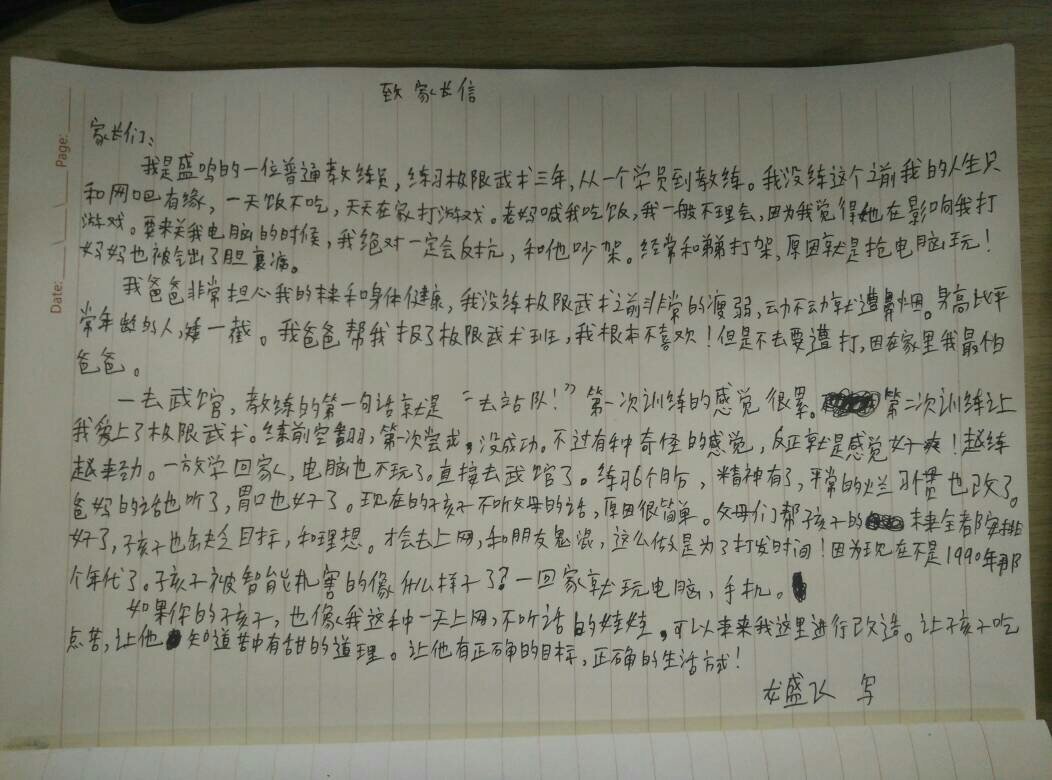 致家长信
Page:
Date:
家长们：
我是盛鸣的一位普通教练员，练习极限武术三年，从一个学员到教练。我没练这个之前我的人生只
和网吧有缘，一天饭不吃，天天在家打游戏。老妈喊我吃饭，我一般不理会，因为我觉得她在影响我打
游戏。要来关我电脑的时候，我绝对一定会反抗，和他吵架。经常和弟弟打架，原因就是抢电脑玩！
妈妈也被气出了胆囊病。
我爸爸非常担心我的未来和身体健康，我没练极限武术之前非常的瘦弱，动不动就遭鼻烟。身高比平
常年龄的人，矮一截。我爸爸帮我报了极限武术班，我根本不喜欢！但是不去要遭打，因在家里我最怕
爸爸。
一去武馆，教练的第一句话就是“去站队！”第一次训练的感觉很累。第二次训练让
我爱上了极限武术。练前空翻，第一次尝试，没成功。不过有种奇怪的感觉，反正就是感觉好爽！越练
越来劲。一放学回家，电脑也不玩了。直接去武馆了。练习6个月份，精神有了，平常的烂习惯也改了。
爸妈的话也听了，胃口也好了。现在的孩子不听父母的话，原因很简单。父母们帮孩子的未来全都安排
好了，孩子也缺乏目标，和理想。才会去上网，和朋友鬼混，这么做是为了打发时间！因为现在不是1990年那
个年代了。孩子被智能机害的像什么样子了？一回家就玩电脑，手机。
如果你的孩子，也像我这种一天上网，不听话的娃娃，可以来我这里进行改造。让孩子吃
点苦，让他知道苦中有甜的道理。让他有正确的目标，正确的生活方式！
龙盛飞 写